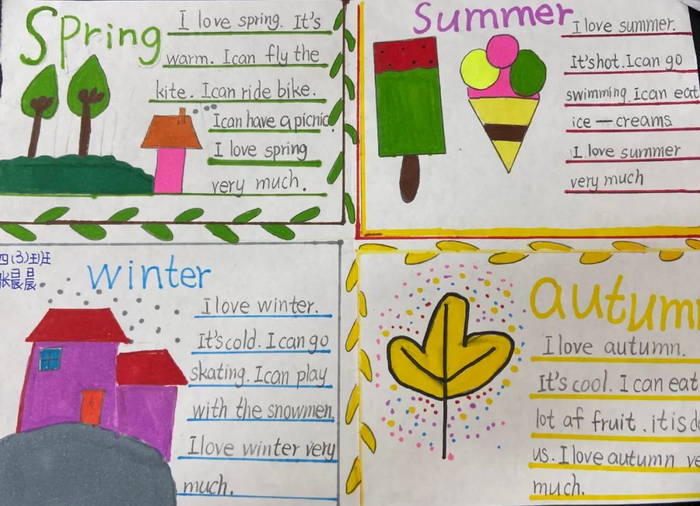 Spring
I love spring. It's
warm. I can fly the
kite. I can ride bike.
I can have a picnic
I love spring
very much.
Summer
I love summer.
It's hot. I can go
swimming. I can eat
ice — creams
I love summer
very much
四(3)班
winter
I love winter.
It's cold. I can go
skating. I can play
with the snowmen.
I love winter very
much.
autum
I love autumn.
It's cool. I can eat
lot af fruit. it is
us. I love autumn ve
much.